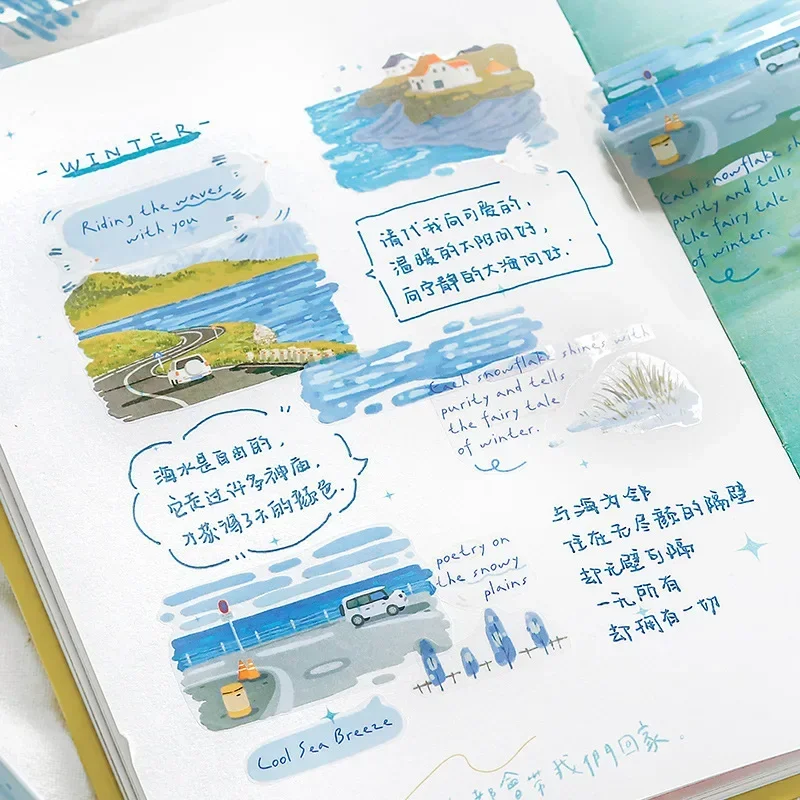 - WINTER -
Riding the waves
with you
请代我向可爱的,
温暖的太阳问好,
向宁静的大海问好.
Each snowflake shines with
purity and tells
the fairy tale
of winter.
海水是自由的,
它走过许多神庙,
才获得了不的颜色.
poetry on
the snowy
plains
与海为邻
住在无尽蓝的隔壁
却无壁可隔
一无所有
却拥有一切
Cool Sea Breeze
都會帶我們回家。
Each snowflake sh
purity and tells
the fairy tale
of winter.